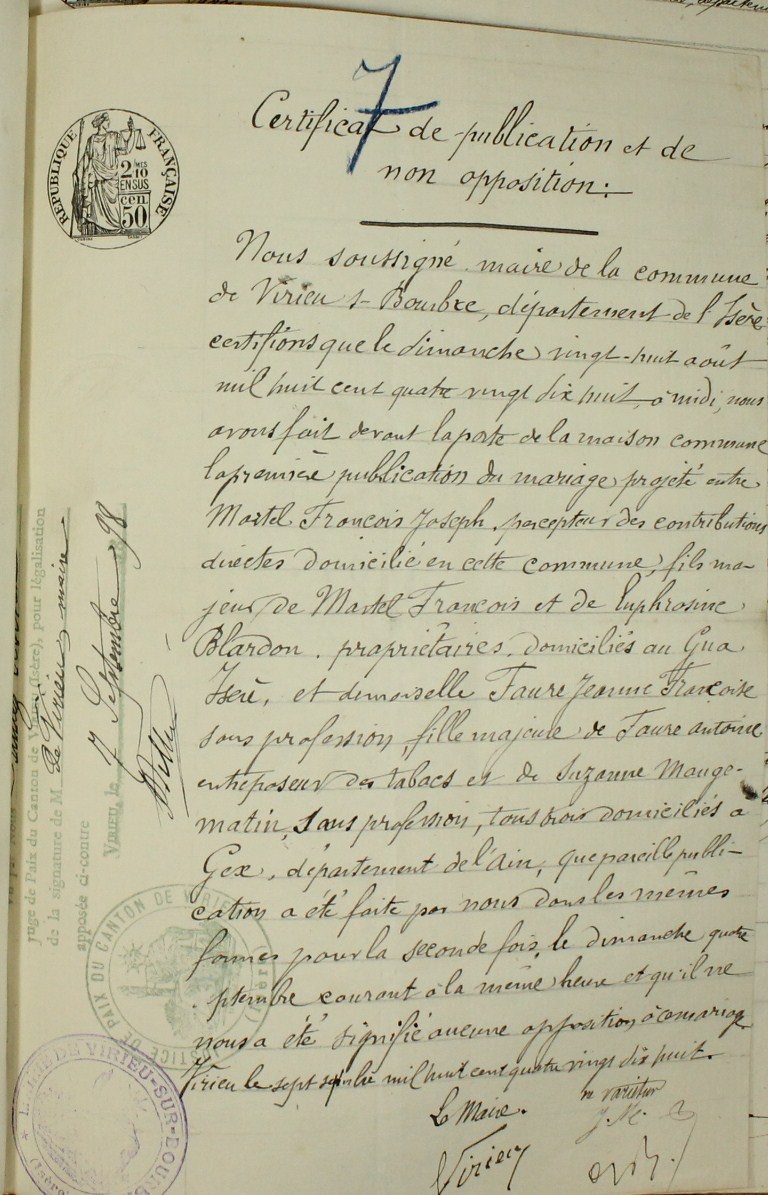 7
Certificat de publication et de
non opposition :
RÉPUBLIQUE FRANÇAISE
2/10 EN SUS
cen. 50
Nous soussigné maire de la commune
de Virieu s- Bourbre, département de l'Isère
certifions que le dimanche vingt-huit août
mil huit cent quatre vingt dix huit, à midi, nous
avons fait devant la porte de la maison commune
la première publication du mariage projeté entre
Martel François Joseph, percepteur des contributions
directes domicilié en cette commune, fils ma-
jeur de Martel François et de Euphrosine
Blardon, propriétaires, domiciliés au Gua
Isère, et demoiselle Faure Jeanne Françoise
sans profession, fille majeure de Faure antoine
entreposeur des tabacs et de Suzanne Mauge-
matin, sans profession, tous trois domiciliés à
Gex, département de l'Ain, que pareille publi-
cation a été faite par nous dans les mêmes
formes pour la seconde fois, le dimanche quatre
ptembre courant à la même heure et qu'il ne
nous a été signifié aucune opposition à ce mariage
Virieu le sept septembre mil huit cent quatre vingt dix huit.
Le Maire.
ne varietur
J. M.
Virieu
juge de Paix du Canton de Virieu (Isère), pour légalisation
de la signature de M
de Virieu, maire
apposée ci-contre
Virieu, le 7 Septembre 98
JUSTICE DE PAIX DU CANTON DE VIRIEU (Isère)
MAIRIE DE VIRIEU-SUR-BOURBRE (Isère)